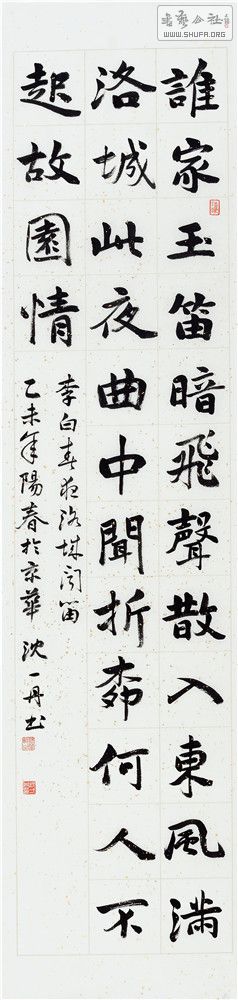 誰家玉笛暗飛聲散入東風滿
洛城此夜曲中聞折柳何人不
起故園情
李白春夜洛城聞笛
乙未年陽春於京華 沈一丹書
書藝公社
WWW.SHUFA.ORG